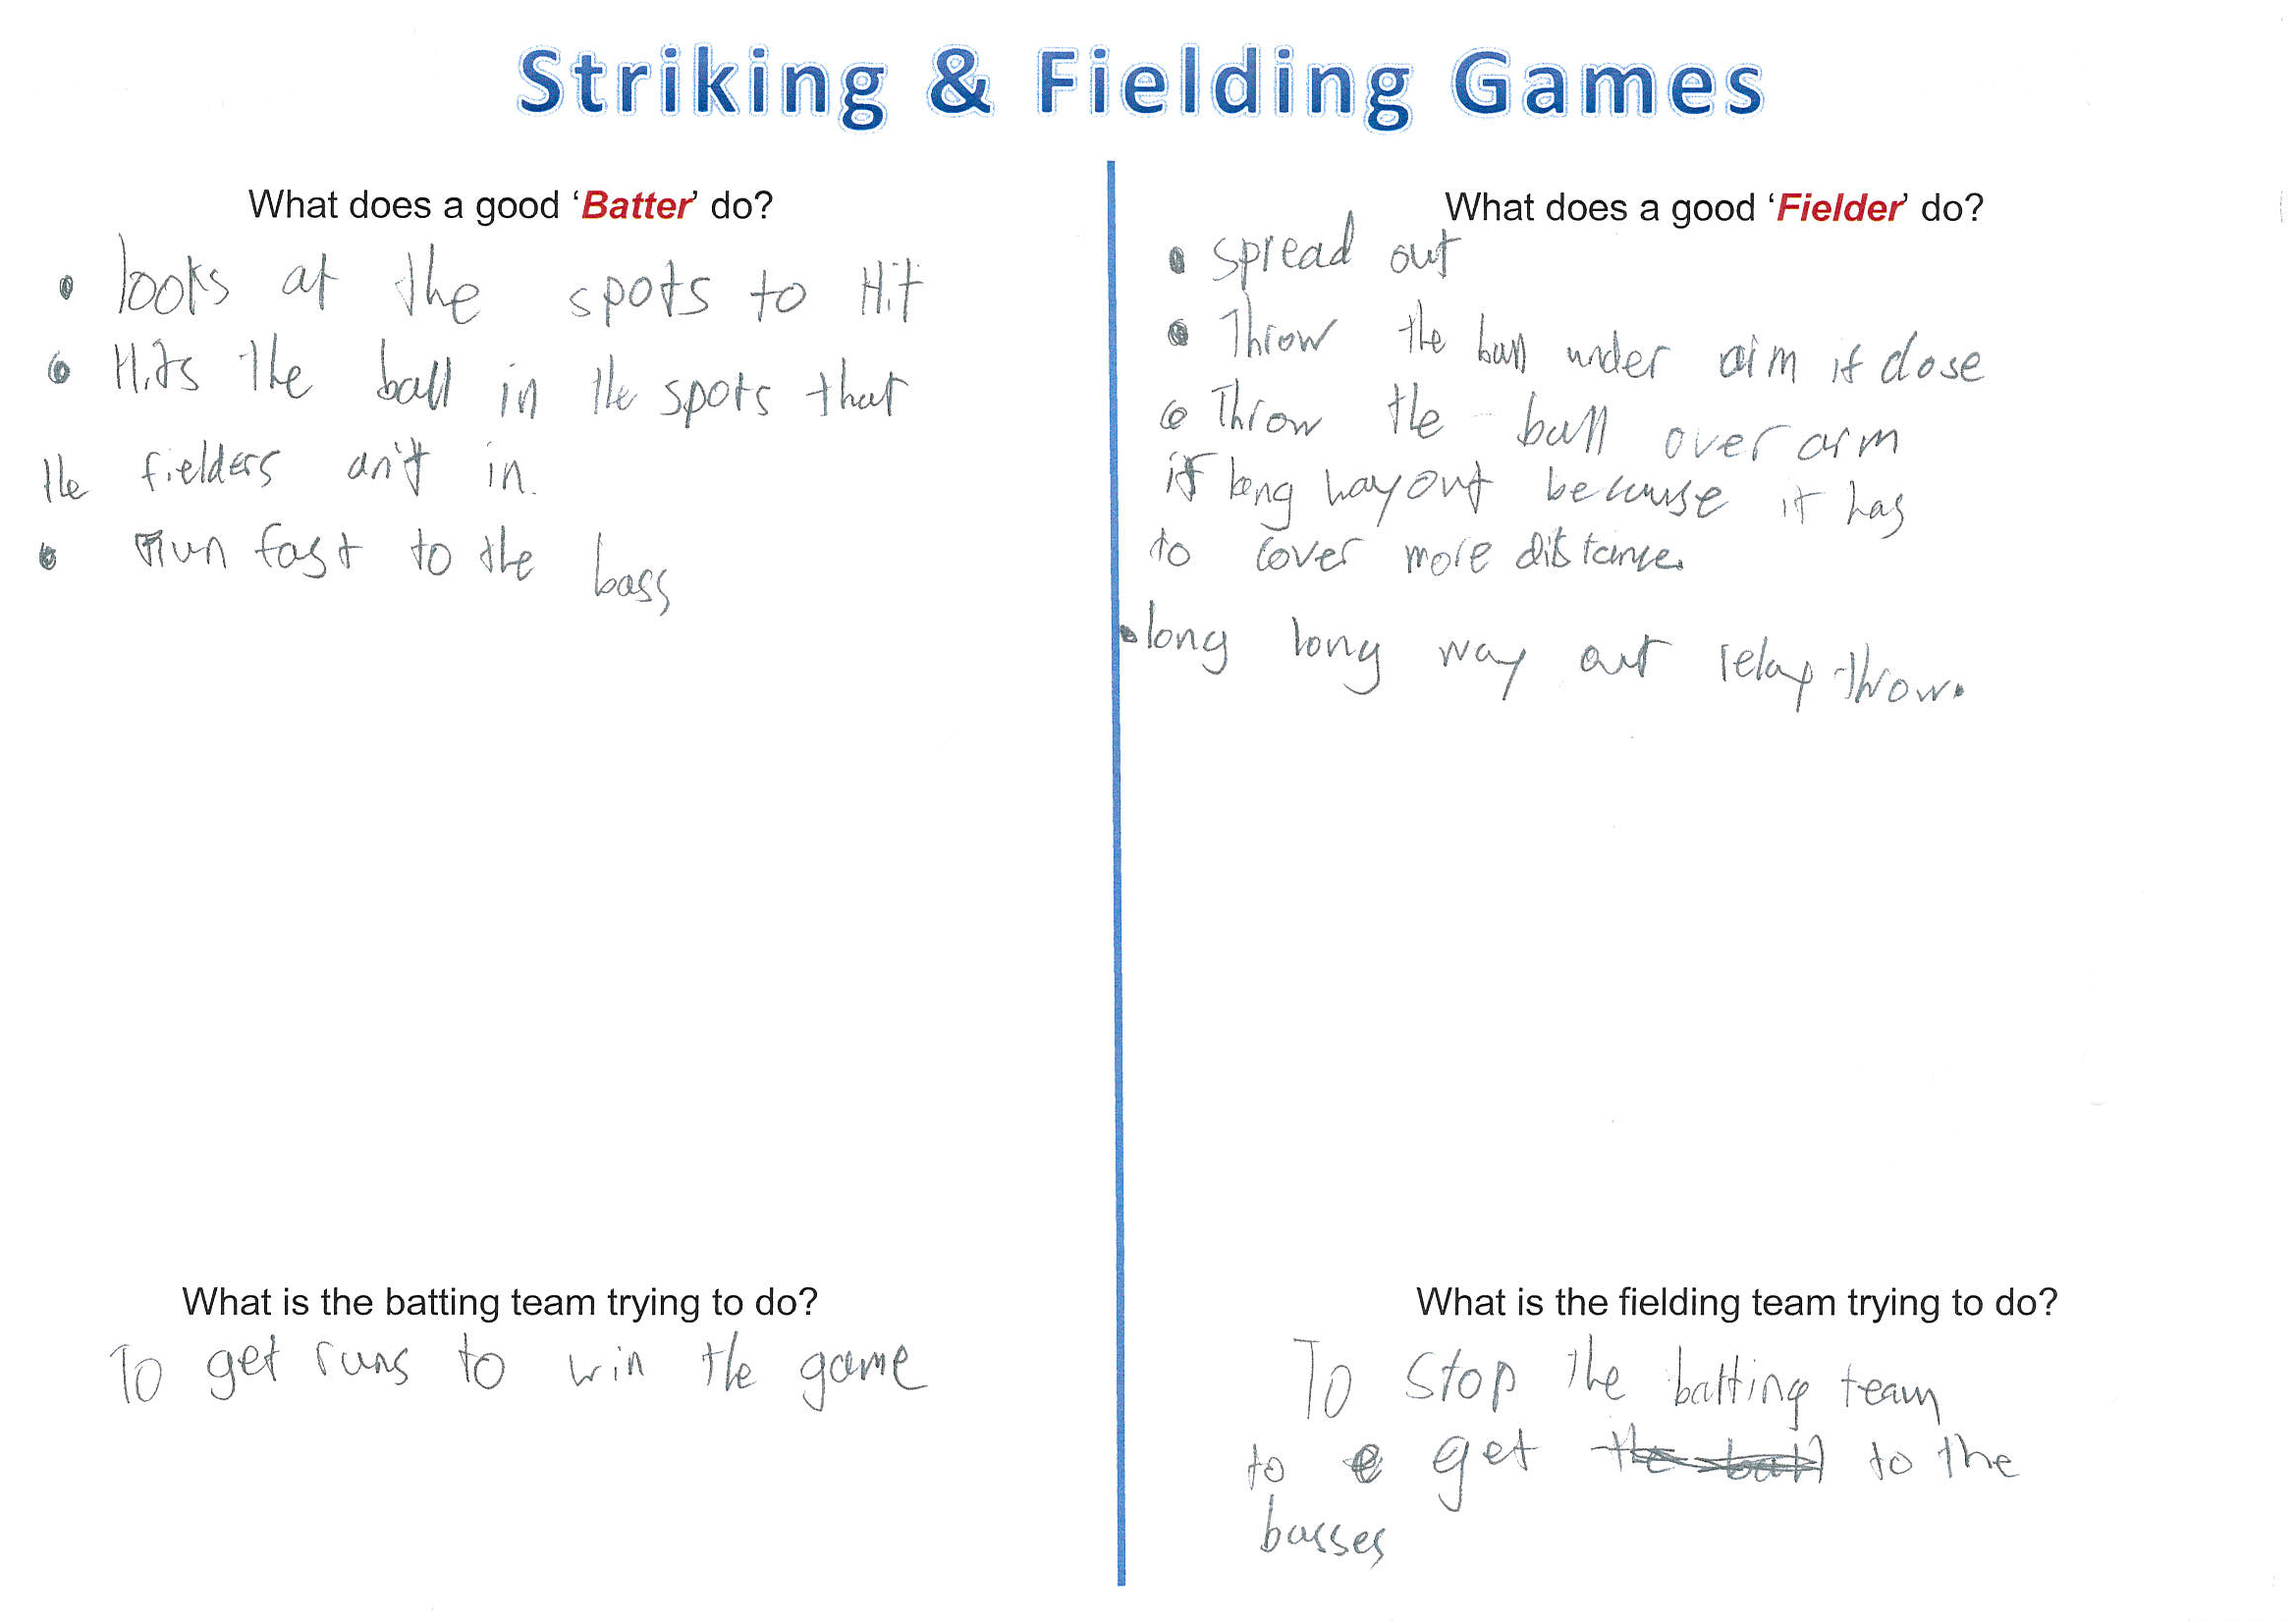 Striking & Fielding Games
What does a good ‘Batter’ do?
• looks at the spots to Hit
• Hits the ball in the spots that
the fielders an't in.
• run fast to the bass
What is the batting team trying to do?
To get runs to win the game
What does a good ‘Fielder’ do?
• spread out
• Throw the ball under aim if close
• Throw the ball over arm
if long way out because it has
to cover more distance.
• long long way out relay throw.
What is the fielding team trying to do?
To stop the batting team
to get the ball to the
basses